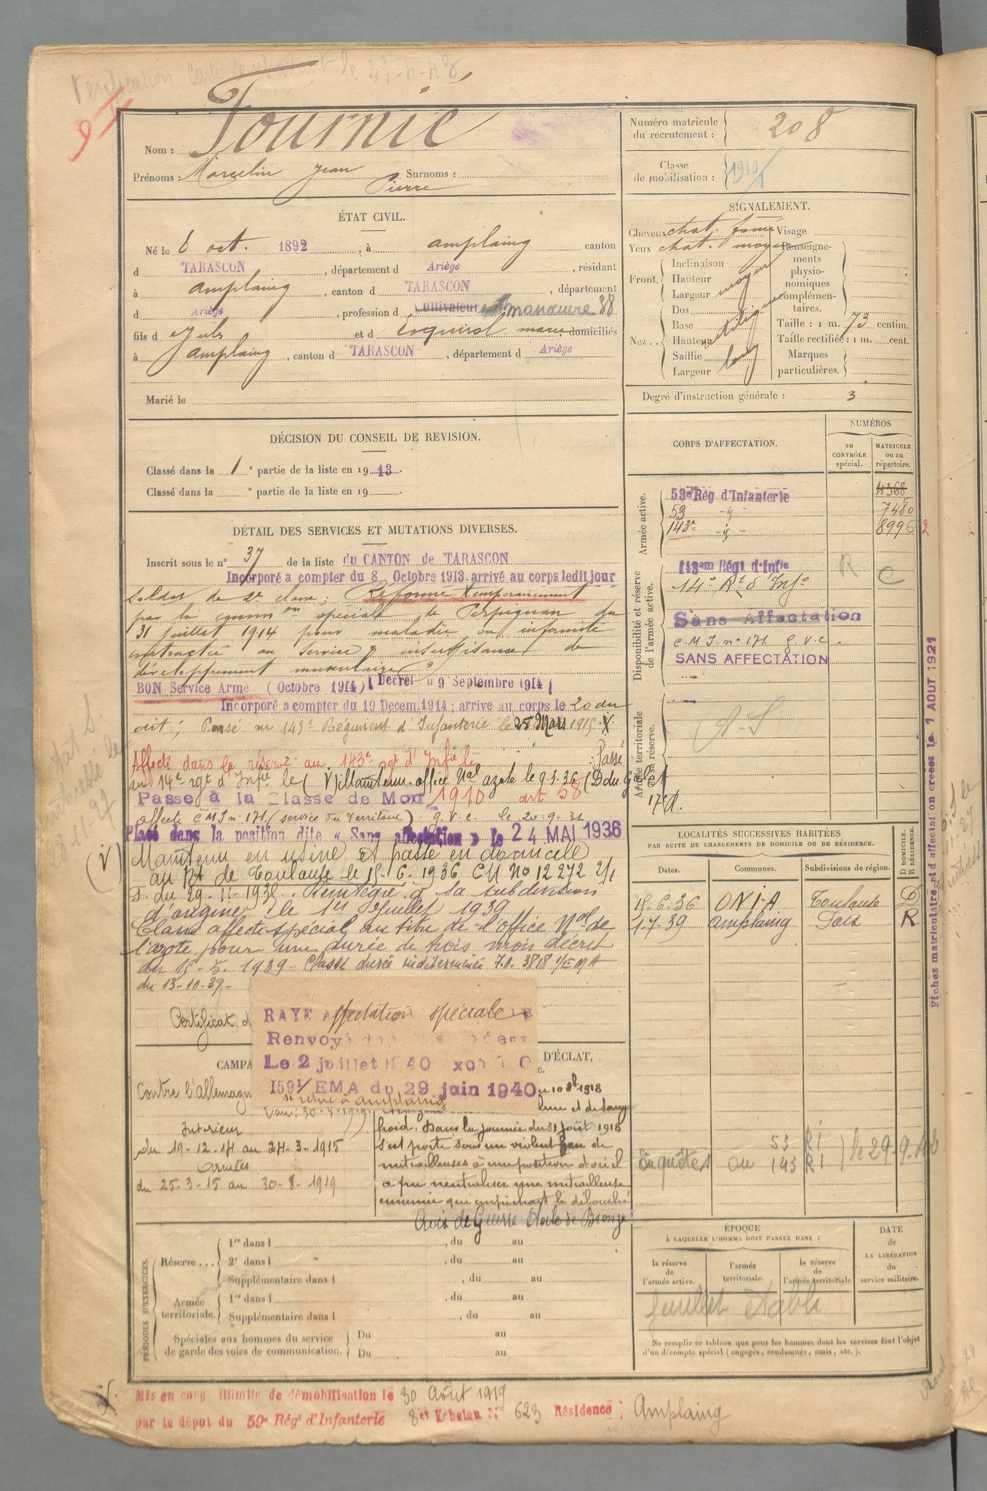 Nom : Fournié
Prénoms : Marcelin Jean Pierre Surnoms :
Numéro matricule du recrutement : 208
Classe de mobilisation : 1910
ÉTAT CIVIL.
Né le 6 oct. 1892, à amplaing canton
d TARASCON, département d Ariège, résidant
à amplaing, canton d TARASCON, département
d Ariège, profession d Cultivateur manœuvre 38
fils d et d Esquirol marie domiciliés
à amplaing, canton d TARASCON, département d Ariège
Marié le
SIGNALEMENT.
Cheveux chat. foncé Visage
Yeux chat. moyen Renseignements physionomiques complémentaires.
Front. Inclinaison
Hauteur
Largeur moyen
Nez.. Dos
Base
Hauteur
Saillie
Largeur
Taille : 1 m. 73 centim.
Taille rectifiée : 1 m. cent.
Marques particulières.
Degré d'instruction générale : 3
DÉCISION DU CONSEIL DE REVISION.
Classé dans la 1e partie de la liste en 1913.
Classé dans la e partie de la liste en 19
DÉTAIL DES SERVICES ET MUTATIONS DIVERSES.
Inscrit sous le n° 37 de la liste du CANTON de TARASCON
Incorporé a compter du 8 Octobre 1913 arrivé au corps ledit jour
soldat de 2e classe ; Réformé temporairement
par la comm on spéciale de Perpignan du
31 juillet 1914 pour maladie ou infirmité
contractée au service : insuffisance de
développement musculaire
BON Service Armé (Octobre 1914) (Décret du 9 Septembre 1914)
Incorporé a compter du 19 Decem. 1914 ; arrivé au corps le 20 du
dit ; Passé au 143e Régiment d'Infanterie le 25 Mars 1915.
Affecté dans la réserve au 143e rgt d'Infie Passé
au 14e rgt d'Infie le
Passé à la Classe de Mob 1910 art 58
affecté C M I n° 171 (service du Territoire) G.V.C. le 20-9-34
Placé dans la position dite « Sans affectation » le 24 MAI 1936
Maintenu en usine et passe en domicile
au Rt de Toulouse le 18-6-1936 CM No 12272 2/1
F. du 29-11-1938. Réintégré à sa subdivision
d'origine, le 1er Juillet 1939
Classé affecté spécial au titre de l'office Nal de
l'azote pour une durée de trois mois décret
du 1939 Classé durée indéterminée I.O. 3818 1/EMA
du 13-10-39-
Certificat d
RAYE affectation spéciale
Renvoyé
Le 2 juillet 1940
1591/EMA du 29 juin 1940
se retire à Amplaing
CORPS D'AFFECTATION.
NUMÉROS
au CONTRÔLE spécial.
MATRICULE ou au répertoire.
Armée active.
53e Rég d'Infanterie 4368
53 -ij- 7480
143e -ij- 8996
Disponibilité et réserve de l'armée active.
143em Régt d'Infie R C
14e Rt d'Infie
Sans Affectation
C M I. n° 171 G.V.C.
SANS AFFECTATION
Armée territoriale et sa réserve.
A-S
Fiches matriculaire et d'affectation créées le 1 AOUT 1921
LOCALITÉS SUCCESSIVES HABITÉES
PAR SUITE DE CHANGEMENTS DE DOMICILE OU DE RÉSIDENCE.
Dates. Communes. Subdivisions de région. D DOMICILE. R RÉSIDENCE.
18.6.36 ONIA Toulouse D
1.7.39 amplaing Foix R
Enquêtes au 53 RI
143 RI le 29-9
CAMPA
Contre l'Allemagn
Intérieur
du 19-12-14 au 24-3-1915
Armées
du 25-3-15 au 30-8-1919
D'ÉCLAT,
1918
calme et de sang
froid. Dans la journée du 31 août 1918
s'est porté sous un violent feu de
mitrailleuses à une position d'où il
a pu neutraliser une mitrailleuse
ennemie qui empêchait le débouché
Croix de Guerre Etoile de Bronze
PÉRIODES D'EXERCICES.
Réserve... 1re dans l , du au
2e dans l , du au
Supplémentaire dans l , du au
Armée territoriale. 1re dans l , du au
Supplémentaire dans l , du au
Spéciales aux hommes du service de garde des voies de communication. Du au
Du au
ÉPOQUE
À LAQUELLE L'HOMME DOIT PASSER DANS :
la réserve de l'armée active.
l'armée territoriale.
la réserve de l'armée territoriale
DATE de LA LIBÉRATION du service militaire.
feuillet établi
Ne remplir ce tableau que pour les hommes dont les services font l'objet
d'un décompte spécial (engagés, condamnés, omis, etc.).
Mis en congé illimité de démobilisation le 30 Août 1919
par le dépot du 59e Régt d'Infanterie 8e Echelon N° 623 Résidence : Amplaing